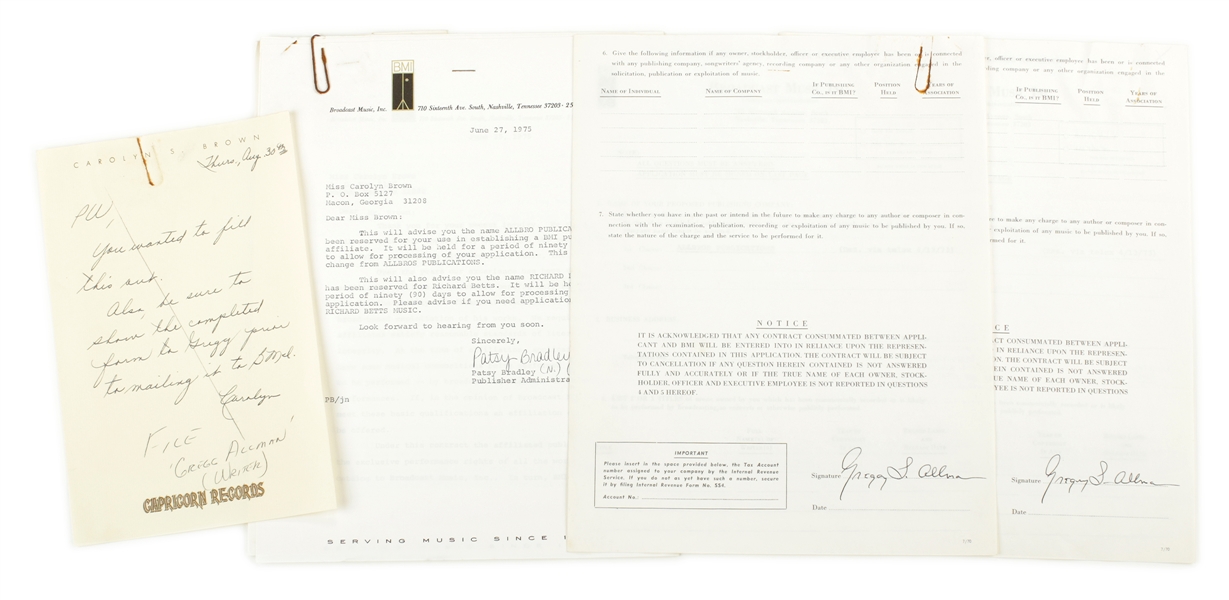 CAROLYN S. BROWN
Thurs., Aug 30th
PW,
You wanted to fill
this out.
Also, be sure to
show the completed
form to Gregg prior
to mailing it to BMI.
Carolyn
FILE
'GREGG ALLMAN'
(WRITER)
CAPRICORN RECORDS
BMI
Broadcast Music, Inc. 710 Sixteenth Ave. South, Nashville, Tennessee 37203 · 25
June 27, 1975
Miss Carolyn Brown
P. O. Box 5127
Macon, Georgia 31208
Dear Miss Brown:
This will advise you the name ALLBRO PUBLICA
been reserved for your use in establishing a BMI pu
affiliate. It will be held for a period of ninety
to allow for processing of your application. This
change from ALLBROS PUBLICATIONS.
This will also advise you the name RICHARD
has been reserved for Richard Betts. It will be he
period of ninety (90) days to allow for processing
application. Please advise if you need applicatio
RICHARD BETTS MUSIC.
Look forward to hearing from you soon.
Sincerely,
Patsy Bradley
Patsy Bradley (N.)
Publisher Administra
PB/jn
SERVING MUSIC SINCE
6. Give the following information if any owner, stockholder, officer or executive employee has been or is connected
with any publishing company, songwriters' agency, recording company or any other organization engaged in the
solicitation, publication or exploitation of music.
NAME OF INDIVIDUAL NAME OF COMPANY IF PUBLISHING CO., IS IT BMI? POSITION HELD YEARS OF ASSOCIATION
7. State whether you have in the past or intend in the future to make any charge to any author or composer in con-
nection with the examination, publication, recording or exploitation of any music to be published by you. If so,
state the nature of the charge and the service to be performed for it.
NOTICE
IT IS ACKNOWLEDGED THAT ANY CONTRACT CONSUMMATED BETWEEN APPLI-
CANT AND BMI WILL BE ENTERED INTO IN RELIANCE UPON THE REPRESEN-
TATIONS CONTAINED IN THIS APPLICATION. THE CONTRACT WILL BE SUBJECT
TO CANCELLATION IF ANY QUESTION HEREIN CONTAINED IS NOT ANSWERED
FULLY AND ACCURATELY OR IF THE TRUE NAME OF EACH OWNER, STOCK-
HOLDER, OFFICER AND EXECUTIVE EMPLOYEE IS NOT REPORTED IN QUESTIONS
4 AND 5 HEREOF.
IMPORTANT
Please insert in the space provided below, the Tax Account
number assigned to your company by the Internal Revenue
Service. If you do not as yet have such a number, secure
it by filing Internal Revenue Form No. SS4.
Account No.:
Signature Gregory L. Allman
Date
er, officer or executive employee has been or is connected
ding company or any other organization engaged in the
IF PUBLISHING CO., IS IT BMI? POSITION HELD YEARS OF ASSOCIATION
re to make any charge to any author or composer in con-
exploitation of any music to be published by you. If so,
rmed for it.
CE
CT CONSUMMATED BETWEEN APPLI-
IN RELIANCE UPON THE REPRESEN-
N. THE CONTRACT WILL BE SUBJECT
EIN CONTAINED IS NOT ANSWERED
UE NAME OF EACH OWNER, STOCK-
YEE IS NOT REPORTED IN QUESTIONS
Signature Gregory L. Allman
Date